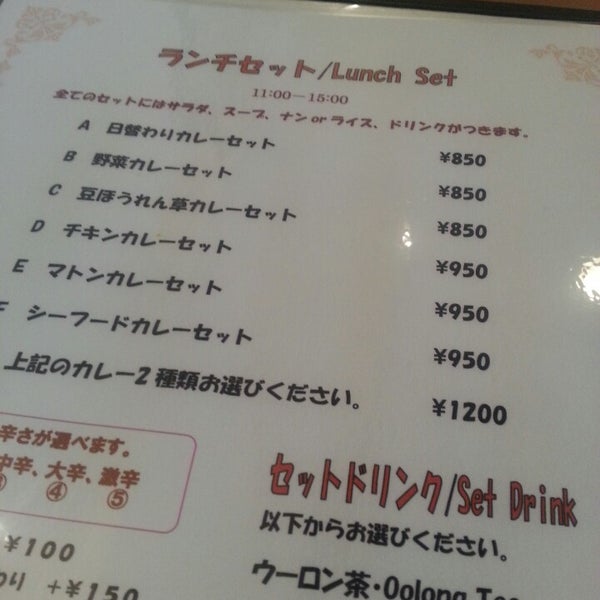 ランチセット/Lunch Set
11:00－15:00
全てのセットにはサラダ、スープ、ナン or ライス、ドリンクがつきます。
A 日替わりカレーセット ¥850
B 野菜カレーセット ¥850
C 豆ほうれん草カレーセット ¥850
D チキンカレーセット ¥950
E マトンカレーセット ¥950
F シーフードカレーセット ¥950
上記のカレー2種類お選びください。 ¥1200
辛さが選べます。
中辛、大辛、激辛
③ ④ ⑤
¥100
+¥150
セットドリンク/Set Drink
以下からお選びください。
ウーロン茶・Oolong Tea